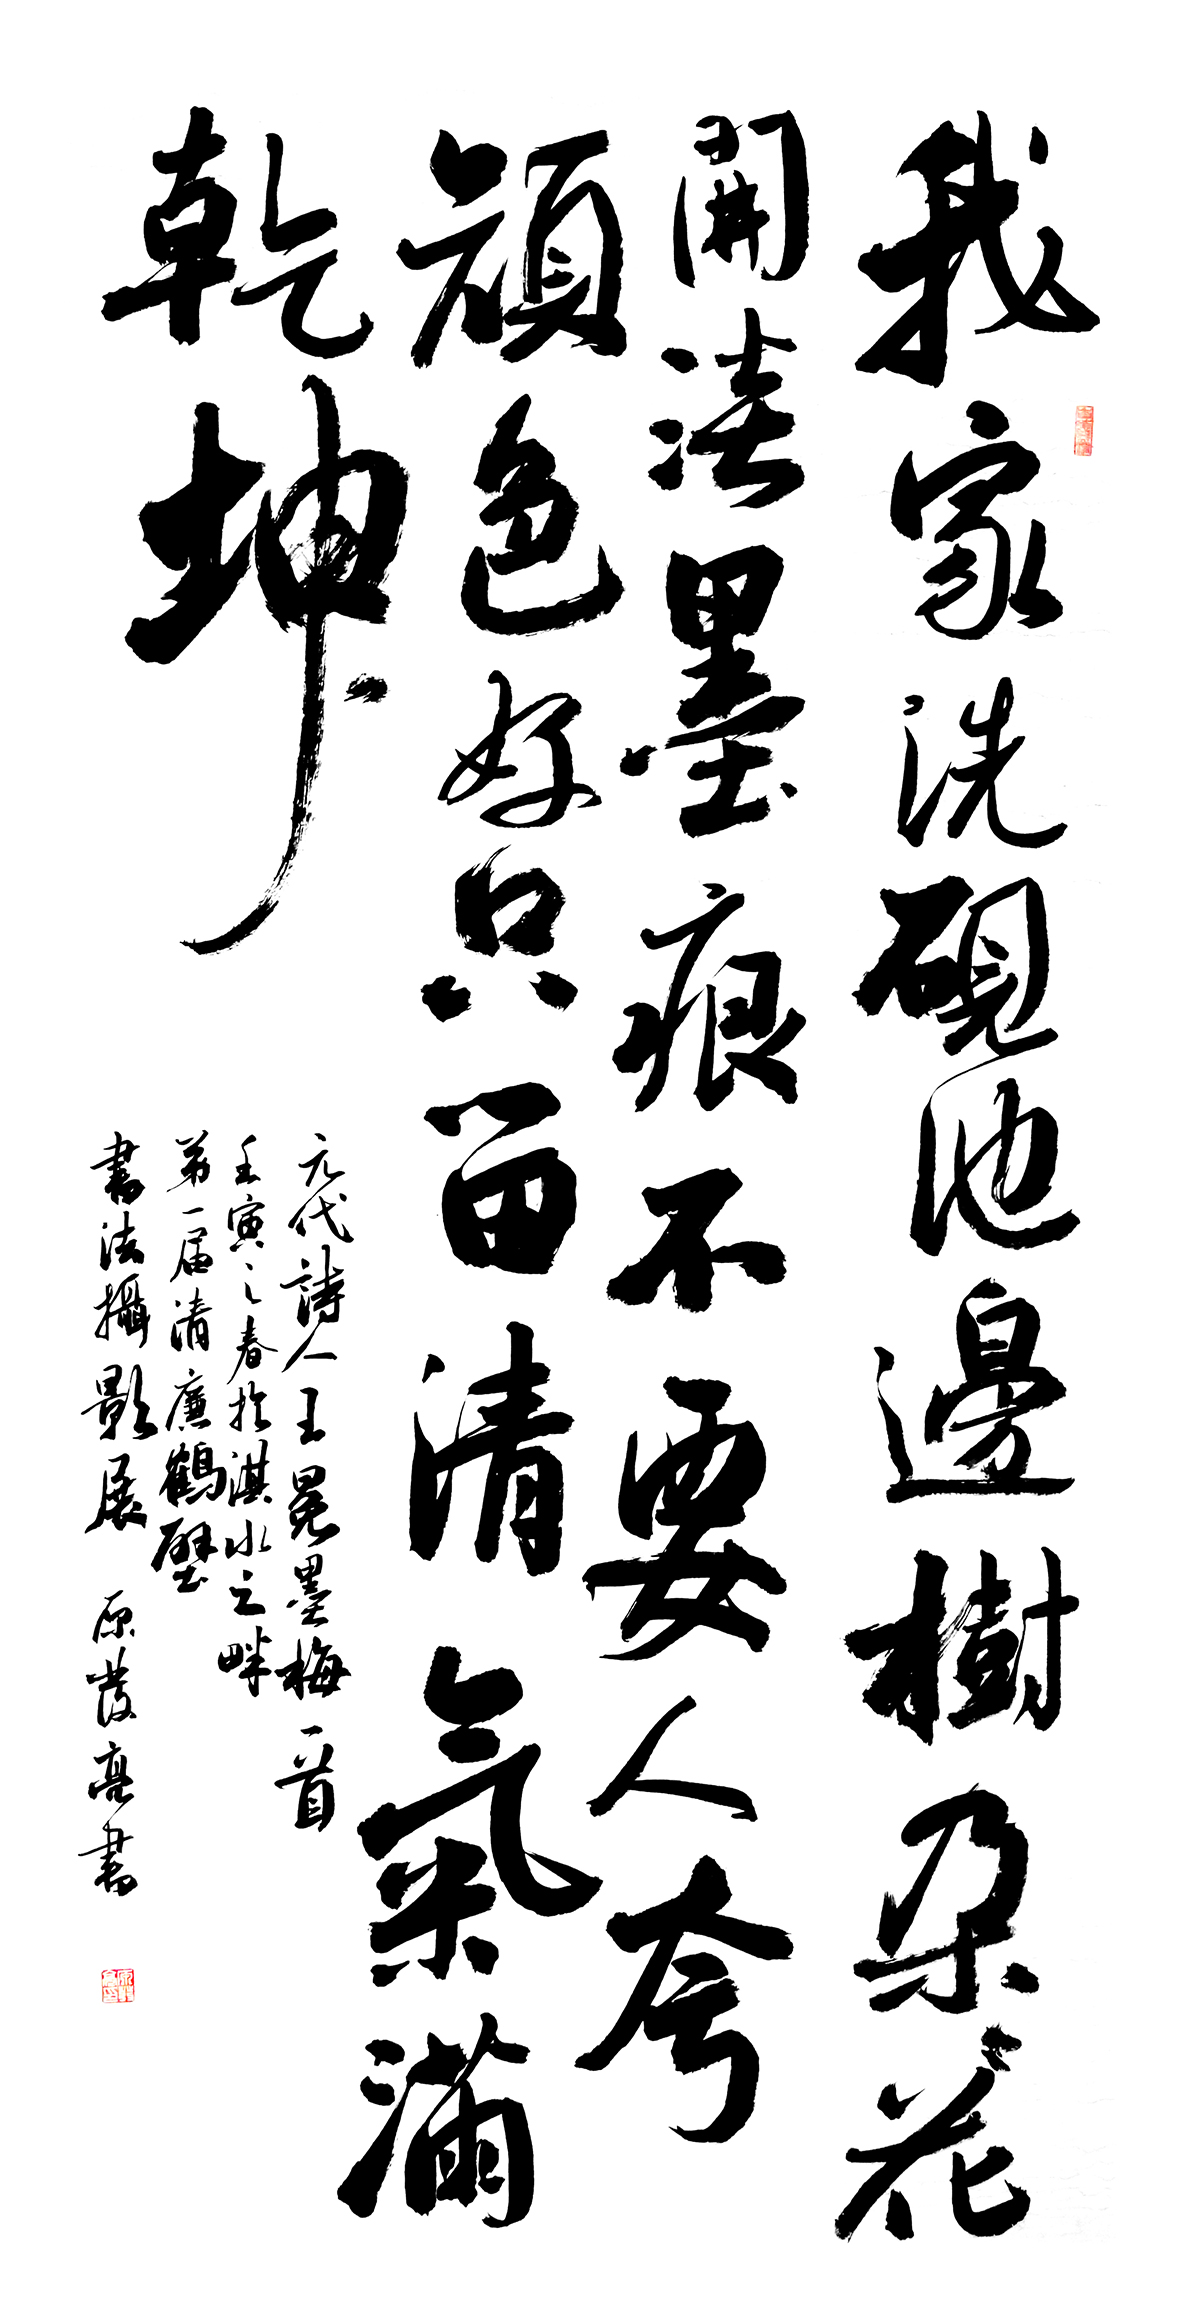 我家洗硯池邊樹朵花
開淡墨痕不要人夸
顏色好只留清氣滿
乾坤
元代詩人王冕墨梅一首
壬寅之春於淇水之畔
第一屆清廉鶴壁
書法攝影展 原發亮書